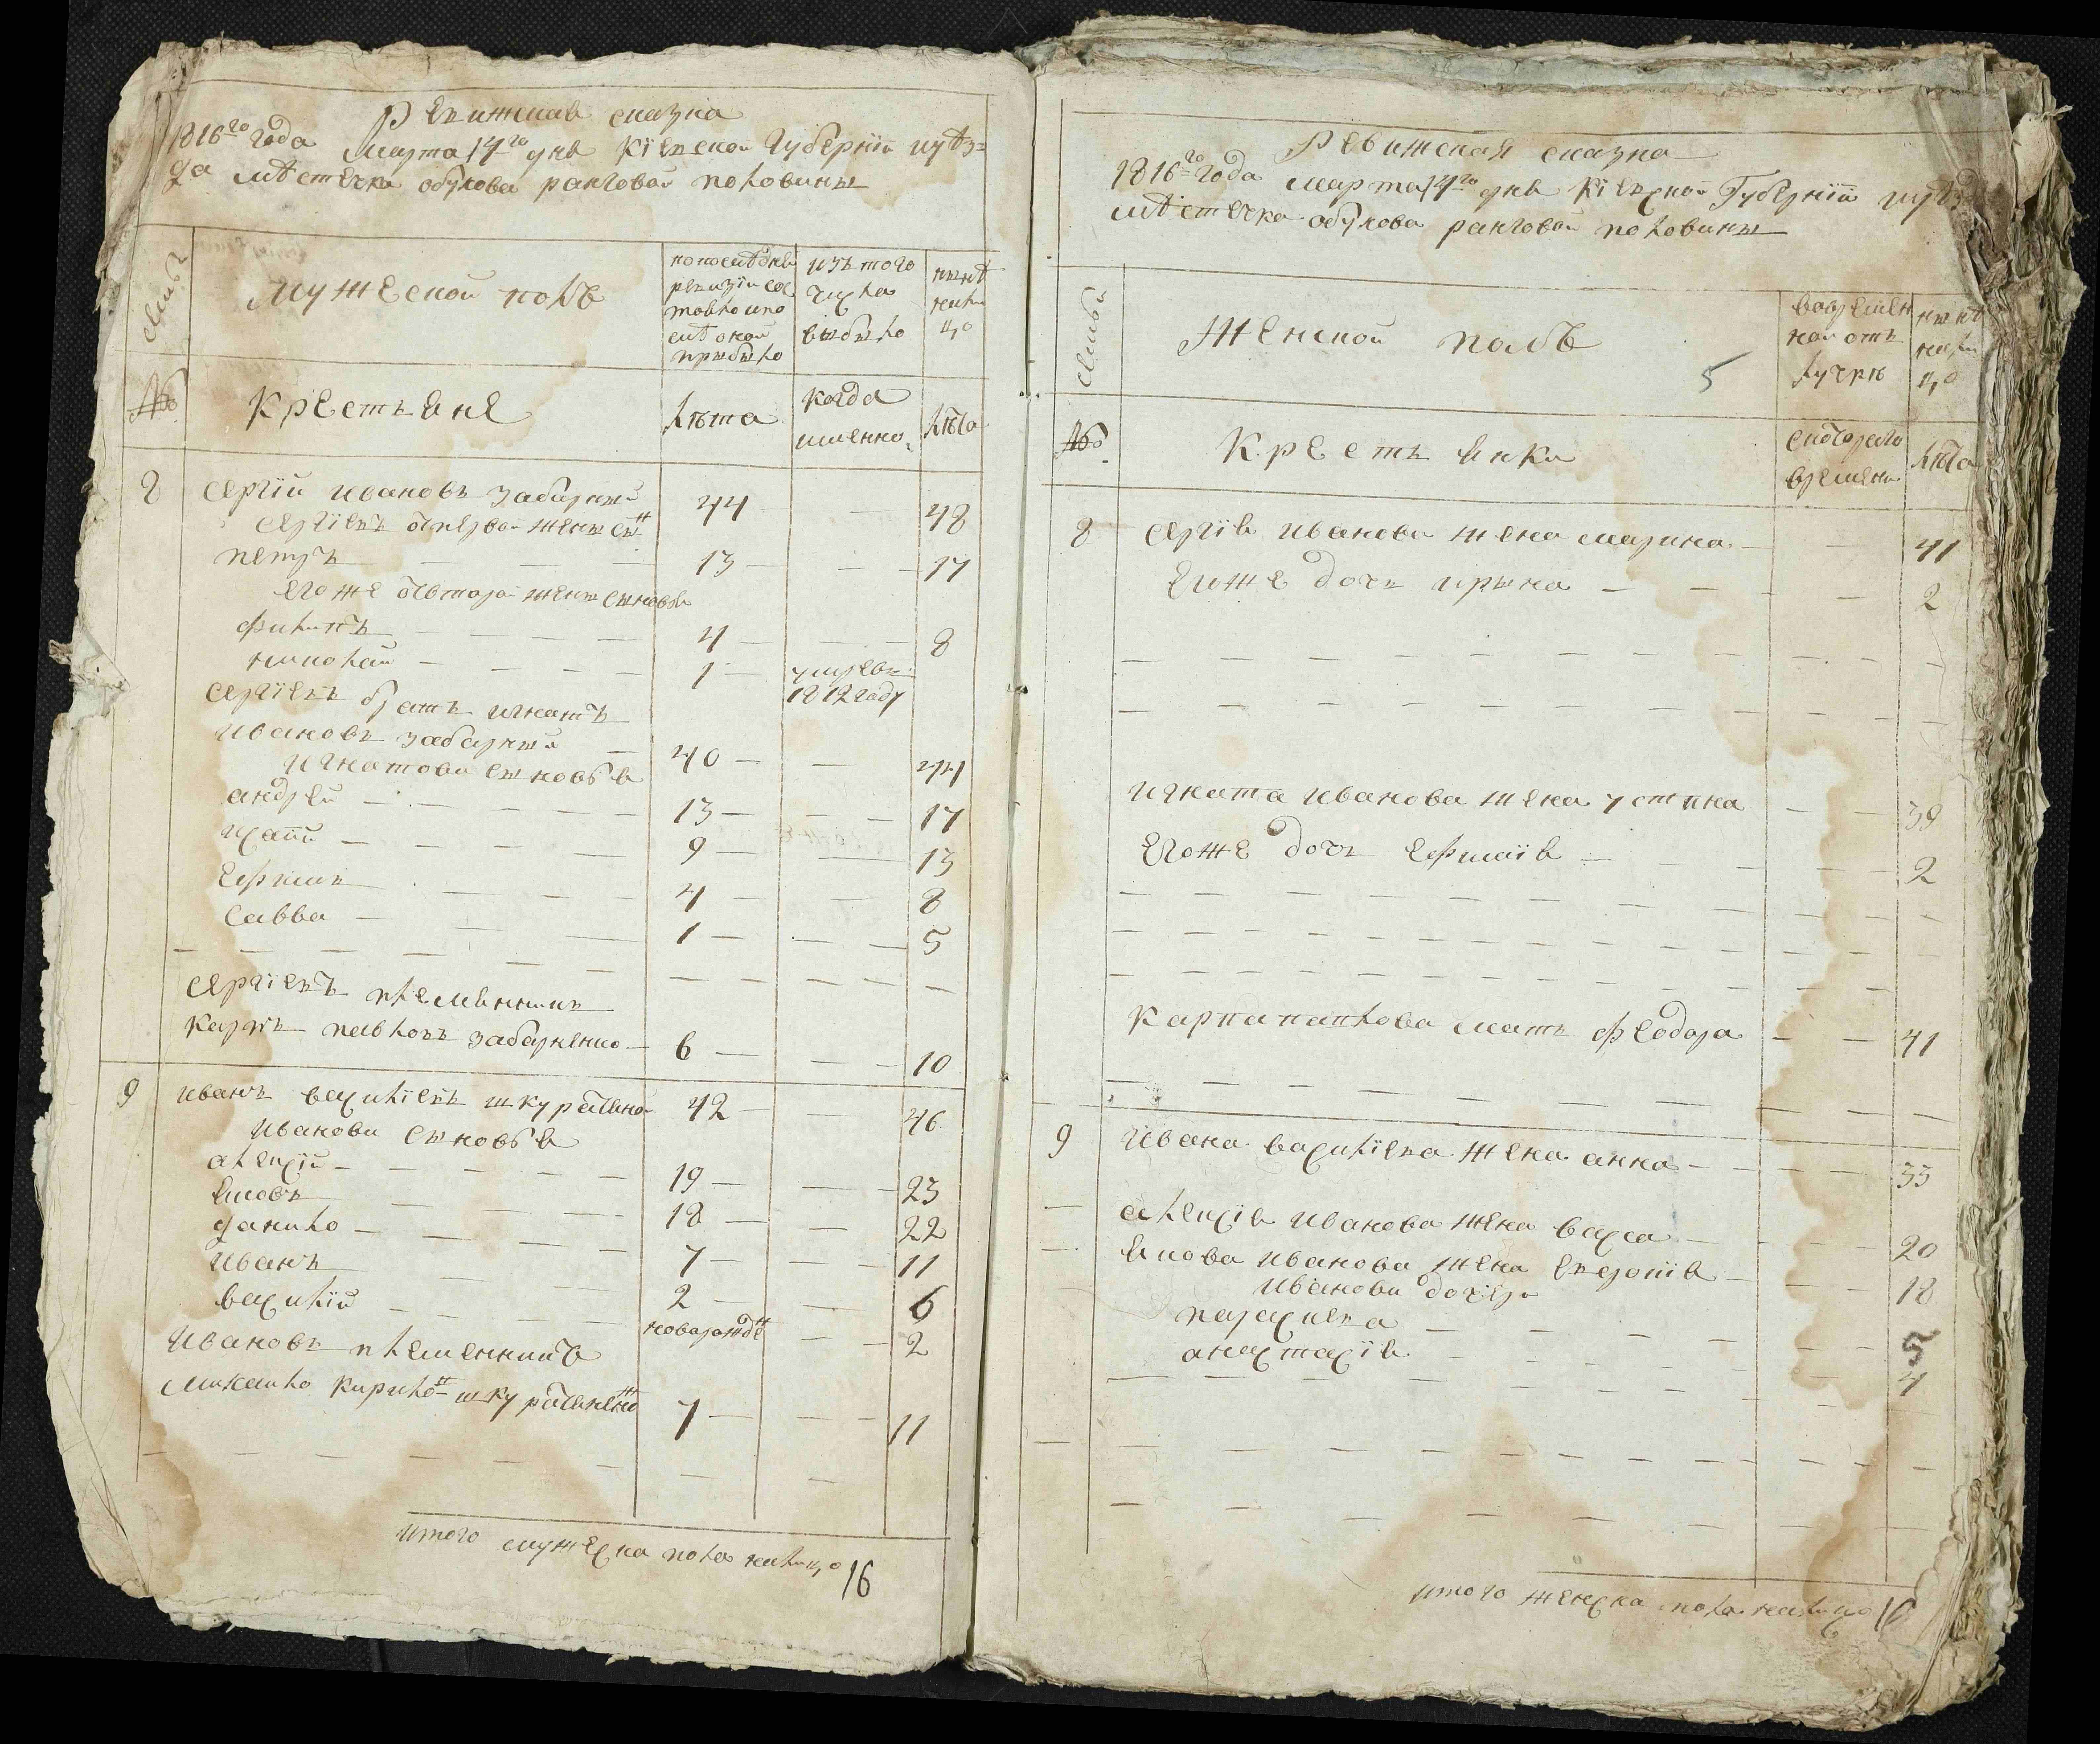 Ревижская сказка
1816го года Марта 14го дня Кіевской Губерніи и уѣз=
да мѣстечка обухова ранговой половины
семьи
Мужеской полъ
по последней
ревизіи сос
тояло и по
слѣ оной
прибыло
изъ того
числа
выбыло
нынѣ
нали
цо
№
Крестьяне
лѣта
когда
именно
лѣта
8 Сергій Ивановъ Забарный 44 — 48
Сергіевъ от первой жены сын
Петръ — 13 — 17
его же от второй жены сыновья
Филипъ — 4 — 8
Николай — 1 — умре въ
1812 году
Сергіевъ братъ Игнатъ
Ивановъ Забарный — 40 — — 44
Игнатови сыновья
Андрей — 13 — — 17
Исай — 9 — 13
Ефимъ — 4 — 8
Савва — 1 — — 5
Сергіевъ племянникъ
Карпъ Павловъ Забарненко — 6 — — 10
9 Иванъ Василіевъ 42 — 46
Иванови сыновья
Алексій — 19 — — 23
Яковъ — 18 — — 22
Данило — 7 — — 11
Иванъ — 2 — 6
Василій — новорожден — 2
Ивановъ племенникъ
Михайло Кирилов 7 — — 11
итого мужеска пола налицо 16
Ревижская сказка
1816го года Марта 14го дня Кіевской Губерніи и уѣзд
мѣстечка обухова ранговой половины
семьи
Женской полъ
5
во временной от
лучкѣ
нынѣ
нали
цо
№
Крестьянки
с которого
времени
лѣта
8 Сергія Иванова жена Марина — — 41
его же дочь Ирина — 2
Игната Иванова жена Устина — — 39
его же дочь Ефимія — 2
Карпа Павлова мать Феодора — — 41
9 Ивана Василіева жена Анна — 35
Алексія Иванова жена Васса — 20
Якова Иванова жена — 18
Иванови дочери
Параскева — 5
Анастасія — 4
итого женска пола налицо 10